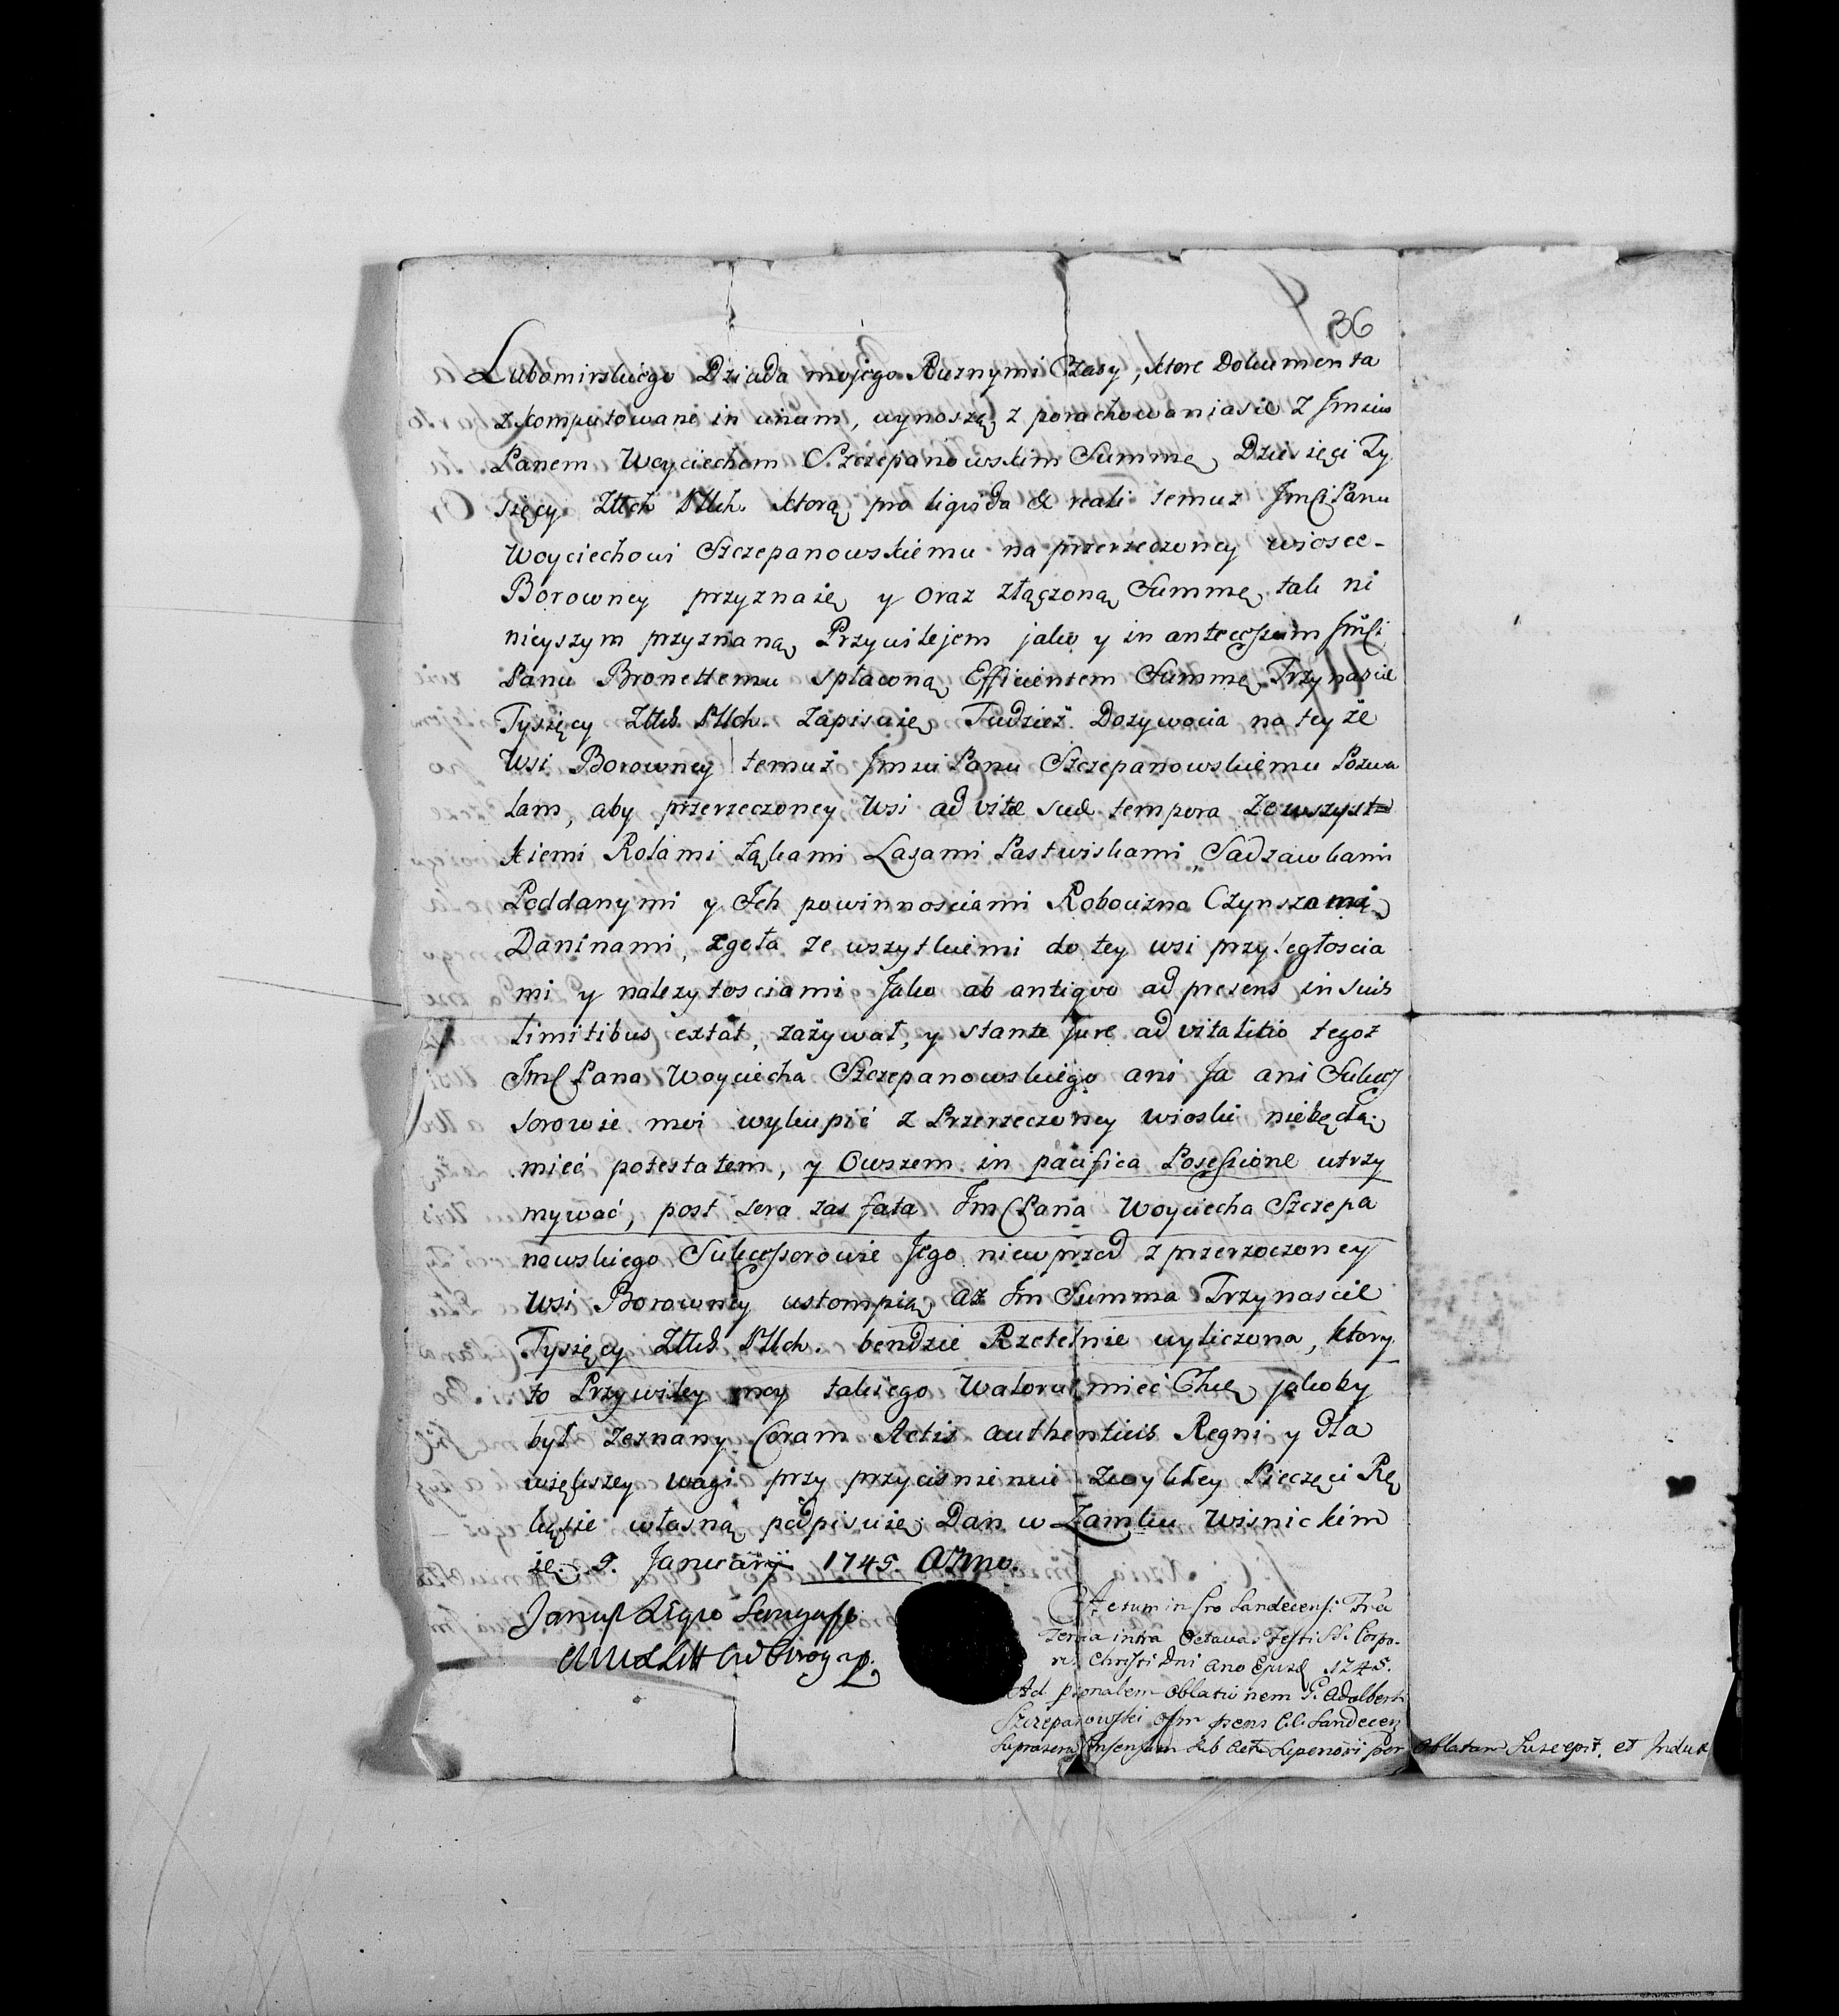 36
Lubomirskiego Dziada mojego Ruznymi Czasy, ktore Dokumenta
zkomputowane in unum, wynoszą z porachowaniasie z Jmciu
Panem Woyciechem Szczepanowskim Summę Dziesięci Ty
sięcy Złłch Płłch. ktorą pro liqvida & reali temuz JmCi Panu
Woyciechowi Szczepanowskiemu na przerzeczoney wiosce-
Borowney przyznaię y oraz złączoną Summę tak ni
nieyszym przyznaną Przywilejem jako y in antecessum JmCi
Panu Bronettemu spłaconą Efficientem Summę Trzynascie
Tysięcy Złłch Płłch. Zapisuię Tudzież Dozywocia na teyże
Wsi Borowney temuż Jmci Panu Szczepanowskiemu Pozwa
lam, aby przerzeczoney Wsi ad vitæ suæ tempora zewszyst
kiemi Rolami Łąkami Lasami Pastwiskami, Sadzawkami
Poddanymi y Ich powinnosciami Robocizna Czynszami
Daninami, zgoła ze wszytkiemi do tey wsi przyległoscia
mi y nalezytosciami Jako ab antiqvo ad presens in suis
limitibus extat, zażywał, y stante jure advitalitio tegoz
Jmć Pana Woyciecha Szczepanowskiego ani Ja ani Sukces
sorowie moi wykupić z Przerzeczoney wioski niebędą
mieć potestatem, y Owszem in pacifica Possessione utrzy
mywać, post sera zas fata Jmć Pana Woyciecha Szczepa
nowskiego Sukcessorowie Jego niewprzod z przerzeczoney
Wsi Borowney ustompią az Im Summa Trzynascie
Tysięcy Złłch Płłch. bendzie Rzetelnie wyliczona, ktory
to Przywiley moy takiego Waloru mieć Chcę jakoby
był zeznany Coram Actis authenticis Regni y dla
większey wagi przy przycisnieniu zwykłey Pieczęci Rę
kąsie własną podpisuię Dan w Zamku Wisnickim
Januarij 1745 Anno.
Actum in Cro Sandecensi Fria
intra Octavas Festi SS. Corpo-
ris Christi Dni Ano Ejusd 1745.
Ad psonalem oblationem G. Adalberti
Szczepanowski
Oblatam Suscepit. et Indux